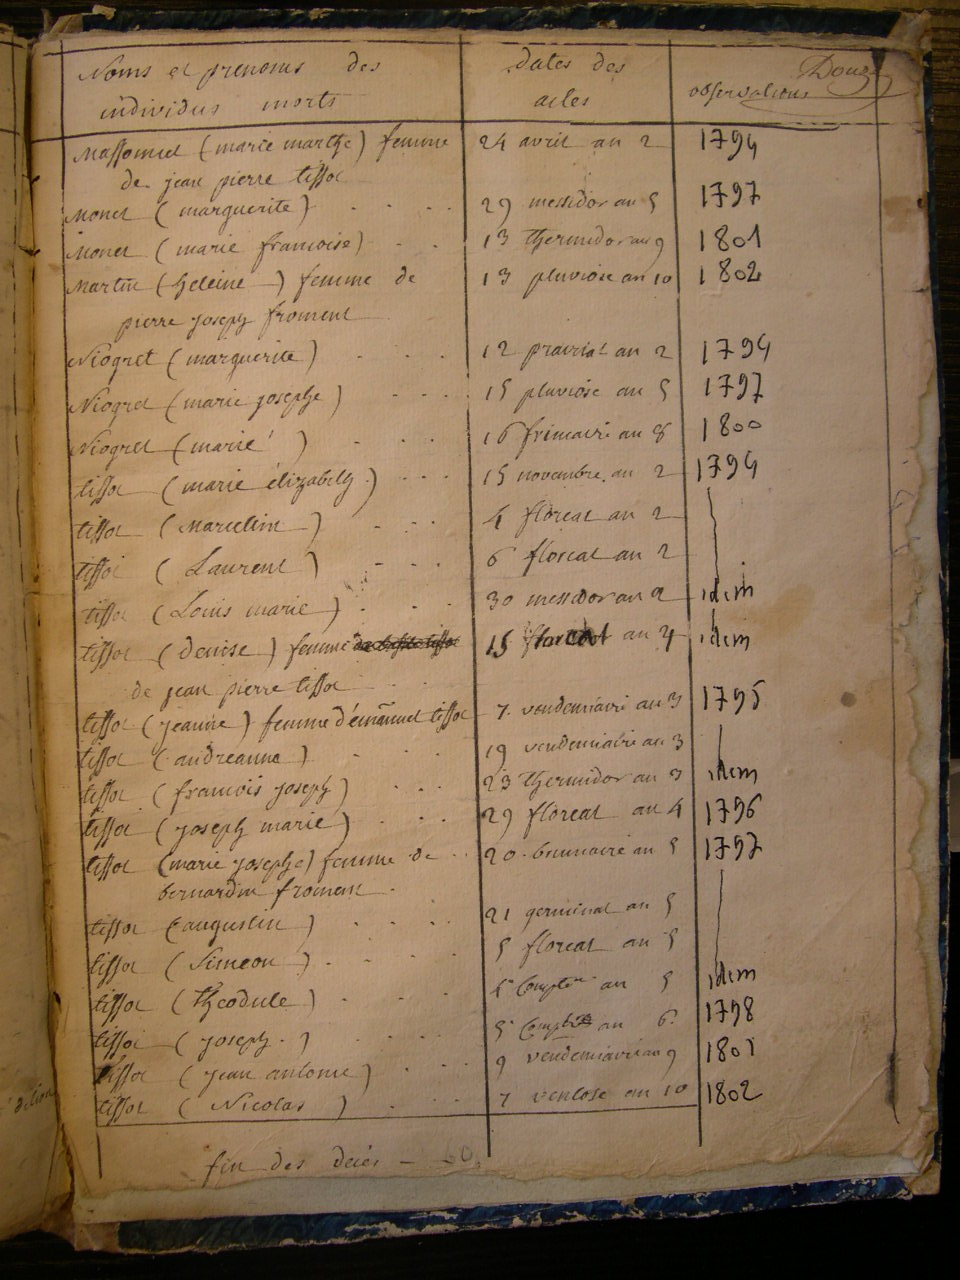 Noms et prenoms des
individus morts
dates des
actes
observations
Douze
Massonnet (marie marthe) femme 24 avril an 2 1794
de jean pierre tissot
Monet (marguerite) 29 messidor an 5 1797
Monet (marie francoise) 13 thermidor an 9 1801
Martin (heleine) femme de 13 pluviose an 10 1802
pierre joseph froment
Niogret (marguerite) 12 prairial an 2 1794
Niogret (marie josephe) 15 pluviose an 5 1797
Niogret (marie) 16 frimaire an 8 1800
tissot (marie élizabeth) 15 novembre an 2 1794
tissot (Marcelin) 4 floreal an 2
tissot (Laurent) 6 floreal an 2
tissot (Louis marie) 30 messidor an 2 idem
tissot (denise) femme 15 floreal an 2 idem
de jean pierre tissot
tissot (jeanne) femme d'émanuel tissot 7 vendemiaire an 3 1795
tissot (andreanne) 19 vendemiaire an 3
tissot (francois joseph) 23 thermidor an 3 idem
tissot (joseph marie) 29 floreal an 4 1796
tissot (marie josephe) femme de 20 brumaire an 5 1797
bernardin froment
tissot (augustin) 21 germinal an 5
tissot (Simeon) 5 floreal an 5
tissot (theodule) an 5 idem
tissot (joseph) an 6 1798
tissot (jean antoine) 9 vendemiaire an 9 1801
tissot (Nicolas) 7 ventose an 10 1802
fin des decés
dition